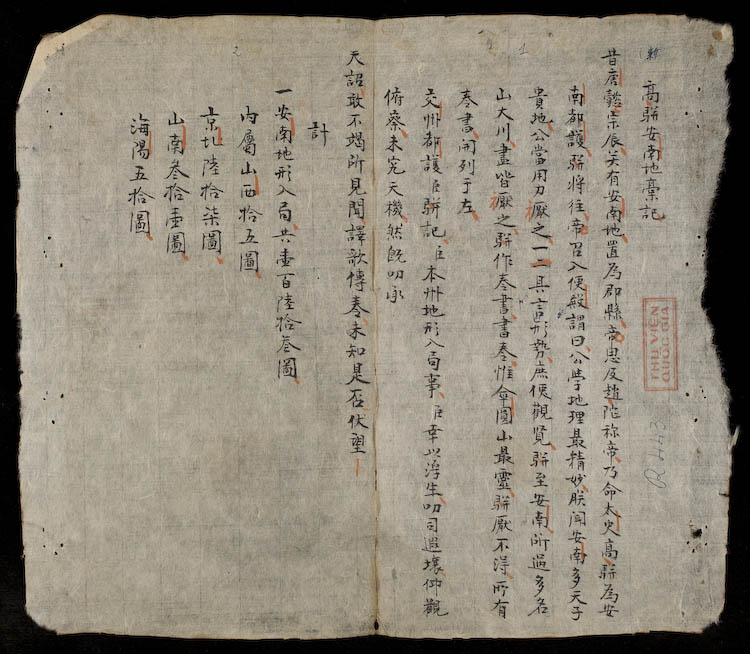 高駢安南地藁記
昔唐懿宗辰奄有安南地置為郡縣帝思及趙陀称帝乃命太史高駢為安
南都護駢將徃帝召入便殿謂曰公學地理最精妙朕聞安南多天子
貴地公當用力厭之一二具言形勢庶便觀覧駢至安南所過多名
山大川盡皆厭之駢作奏書書奏惟傘圓山最靈駢厭不淂所有
奏書開列于左
交州都護臣駢記臣本州地形入局事臣幸以浮生叨司遐壤仰觀
俯察未究天機然既叨承
天詔敢不竭所見聞譯歌傳奏未知是否伏望
計
一安南地形入局共壹百陸拾叁圖
内屬山西拾五圖
京北陸拾柒圖
山南叁拾壹圖
海陽五拾圖
THƯ VIỆN
QUỐC GIA
R.443
1
2